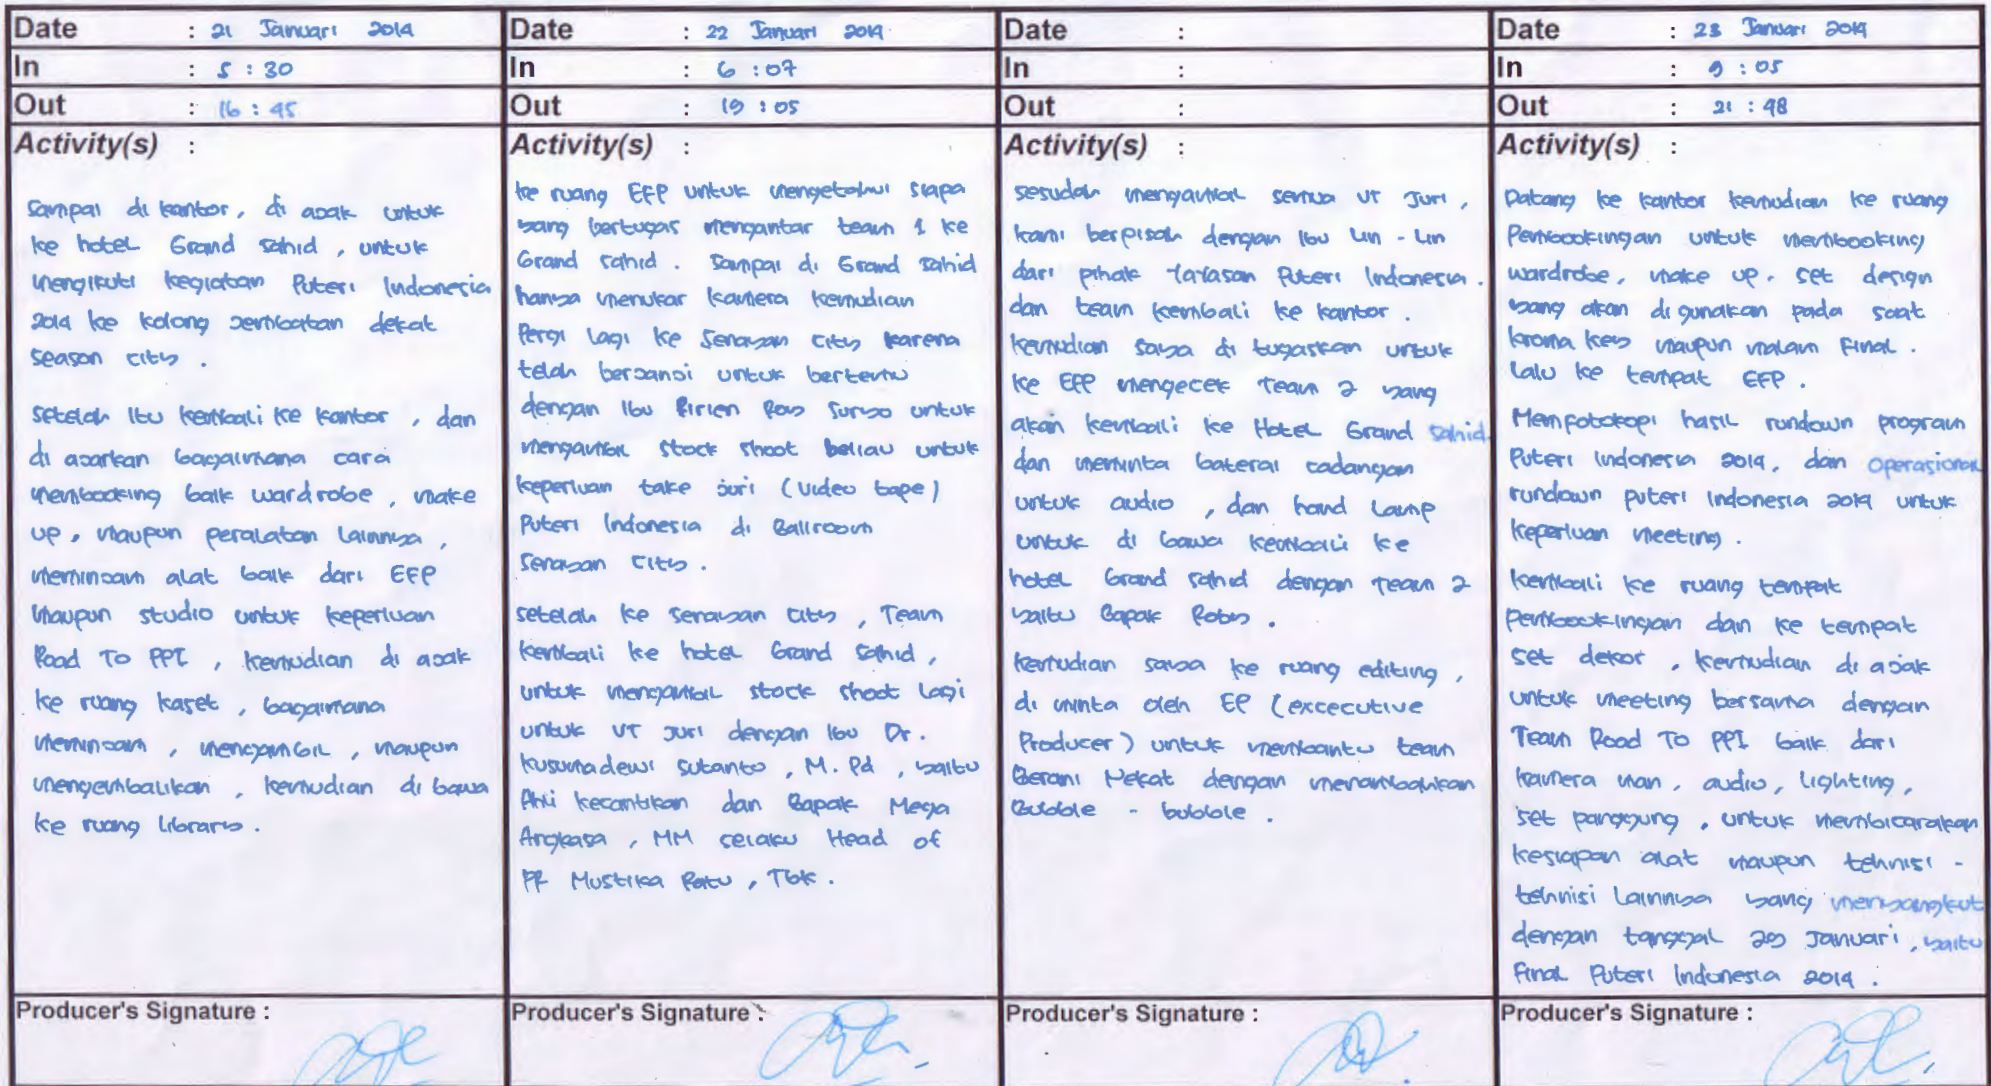 Date : 21 Januari 2014
In : 5 : 30
Out : 16 : 45
Activity(s) :
Sampai di kantor, di ajak untuk
ke hotel Grand Sahid, untuk
mengikuti kegiatan Puteri Indonesia
2014 ke kolong jembatan dekat
season city.
setelah itu kembali ke kantor, dan
di ajarkan bagaimana cara
membooking baik wardrobe, make
up, maupun peralatan lainnya,
meminjam alat baik dari EFP
maupun studio untuk keperluan
Road To PPI, kemudian di ajak
ke ruang kaset, bagaimana
meminjam, mengambil, maupun
mengembalikan, kemudian di bawa
ke ruang library.
Producer's Signature :
Date : 22 Januari 2014
In : 6 : 07
Out : 19 : 05
Activity(s) :
ke ruang EFP untuk mengetahui siapa
yang bertugas mengantar team 1 ke
Grand Sahid. Sampai di Grand Sahid
hanya menukar kamera kemudian
Pergi lagi ke Senayan City karena
telah berjanji untuk bertemu
dengan Ibu Ririen Roy Suryo untuk
mengambil stock shoot beliau untuk
keperluan take juri (video tape)
Puteri Indonesia di Ballroom
Senayan City.
setelah ke senayan city, Team
kembali ke hotel Grand Sahid,
untuk mengambil stock shoot lagi
untuk VT Juri dengan Ibu Dr.
Kusumadewi Sutanto, M. Pd, yaitu
Ahli kecantikan dan Bapak Mega
Angkasa, MM selaku Head of
PR Mustika Ratu, Tbk.
Producer's Signature :
Date :
In :
Out :
Activity(s) :
sesudah mengambil semua VT Juri,
kami berpisah dengan Ibu Lin - Lin
dari pihak Yayasan Puteri Indonesia.
dan team kembali ke kantor.
kemudian saya di tugaskan untuk
ke EFP mengecek Team 2 yang
akan kembali ke Hotel Grand Sahid
dan meminta baterai cadangan
untuk audio, dan hand lamp
untuk di bawa kembali ke
hotel Grand Sahid dengan Team 2
yaitu Bapak Roby.
kemudian saya ke ruang editing,
di minta oleh EP (excecutive
Producer) untuk membantu team
Berani Nekat dengan menambahkan
Bubble - bubble.
Producer's Signature :
Date : 23 Januari 2014
In : 9 : 05
Out : 21 : 48
Activity(s) :
Datang ke kantor kemudian ke ruang
Pembookingan untuk membooking
wardrobe, make up, set design
yang akan di gunakan pada saat
kroma key maupun malam Final.
lalu ke tempat EFP.
Memfotokopi hasil rundown program
Puteri Indonesia 2014, dan operasional
rundown puteri indonesia 2014 untuk
keperluan meeting.
kembali ke ruang tempat
pembookingan dan ke tempat
set dekor, kemudian di ajak
untuk meeting bersama dengan
Team Road To PPI baik dari
kamera man, audio, lighting,
set panggung, untuk membicarakan
kesiapan alat maupun tehnisi -
tehnisi lainnya yang menyangkut
dengan tanggal 29 Januari, yaitu
Final Puteri Indonesia 2014.
Producer's Signature :